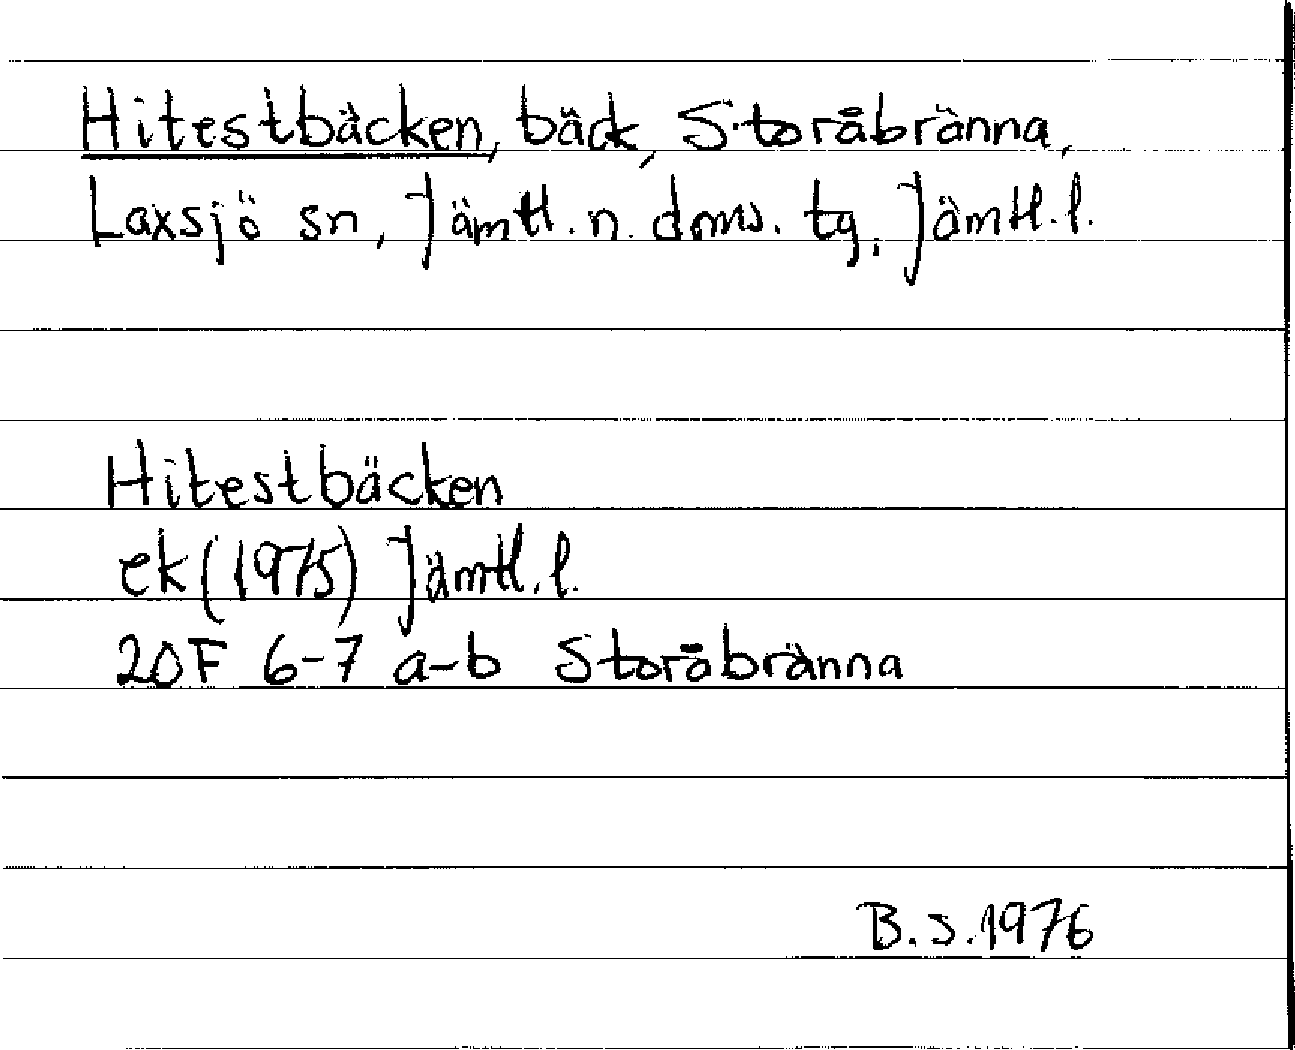 Hitestbäcken, bäck, Storåbränna,
Laxsjö sn, Jämtl. n. doms. tg, Jämtl. l.
Hitestbäcken
ek (1975) Jämtl. l.
20F 6-7 a-b Storåbränna
B.S. 1976